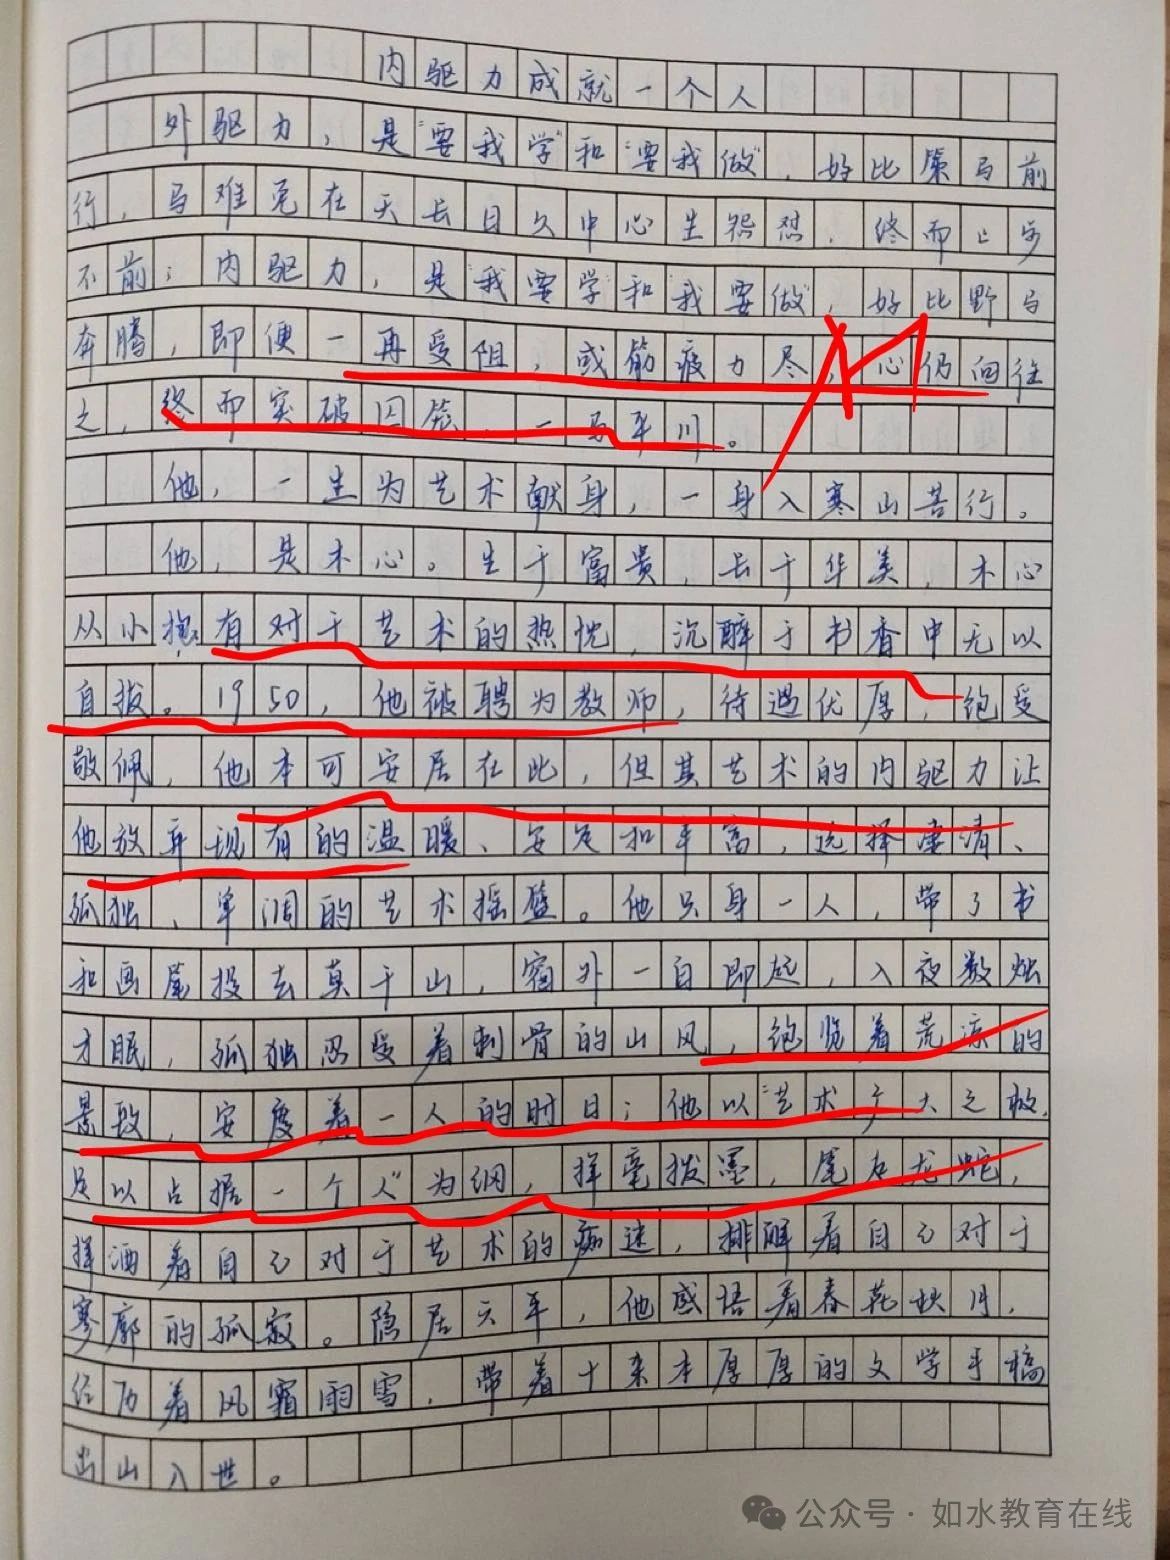 内驱力成就一个人
外驱力，是“要我学”和“要我做”，好比策马前
行，马难免在天长日久中心生怨怼，终而止步
不前；内驱力，是“我要学”和“我要做”，好比野马
奔腾，即便一再受阻，或筋疲力尽，心仍向往
之，终而突破囚笼，一马平川。
他，一生为艺术献身，一身入寒山苦行。
他，是木心。生于富贵，长于华美，木心
从小抱有对于艺术的热忱，沉醉于书香中无以
自拔。1950，他被聘为教师，待遇优厚，饱受
敬佩，他本可安居在此，但其艺术的内驱力让
他放弃现有的温暖、安定和丰富，选择凄清、
孤独、单调的艺术摇篮。他只身一人，带了书
和画笔投去莫干山，窗外一白即起，入夜数烛
才眠，孤独忍受着刺骨的山风，饱览着荒凉的
景致，安度着一人的时日；他以“艺术广大之极，
足以占据一个人”为纲，挥毫拨墨，笔走龙蛇，
挥洒着自己对于艺术的痴迷，排解着自己对于
寥廓的孤寂。隐居六年，他感悟着春花秋月，
经历着风霜雨雪，带着十来本厚厚的文学手稿
出山入世。
公众号·如水教育在线